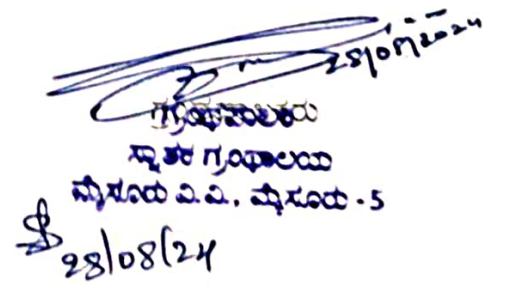 28/08/2024
ಗ್ರಂಥಪಾಲಕರು
ಸ್ನಾತಕ ಗ್ರಂಥಾಲಯ
ಮೈಸೂರು ವಿ.ವಿ. ಮೈಸೂರು - 5
28/08/24